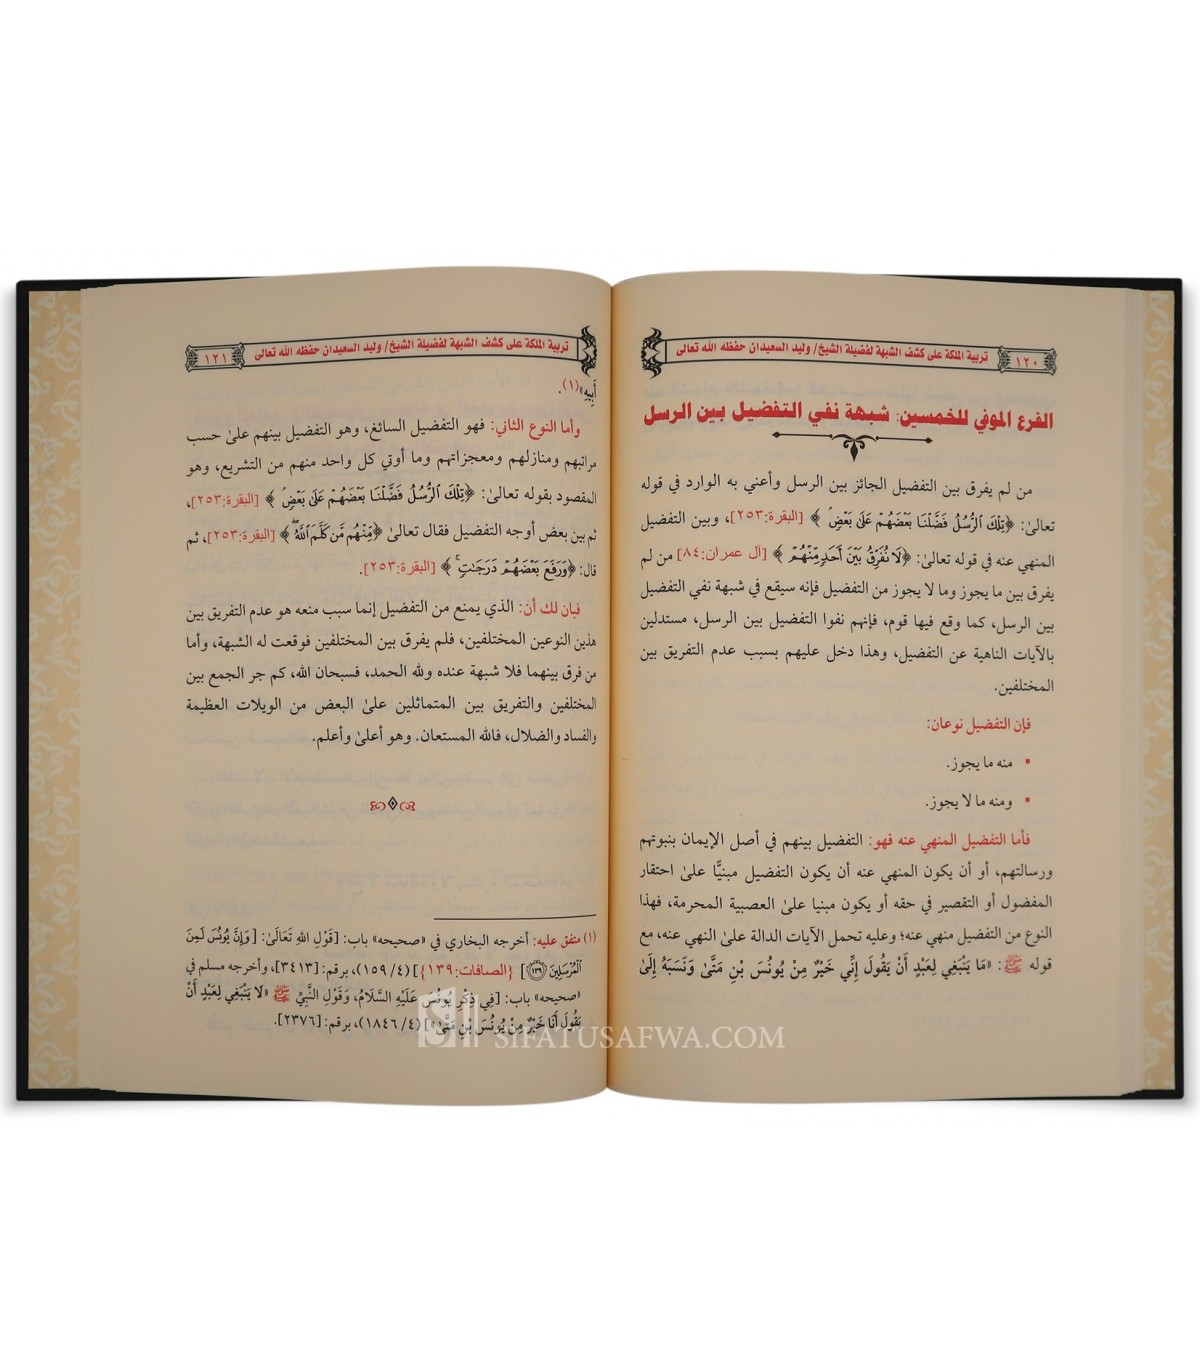 ١٢٠ تربية الملكة على كشف الشبهة لفضيلة الشيخ/ وليد السعيدان حفظه الله تعالى
الفرع الموفي للخمسين: شبهة نفي التفضيل بين الرسل
من لم يفرق بين التفضيل الجائز بين الرسل وأعني به الوارد في قوله
تعالىٰ: ﴿تِلْكَ ٱلرُّسُلُ فَضَّلْنَا بَعْضَهُمْ عَلَىٰ بَعْضٍ ﴾ [البقرة:٢٥٣]، وبين التفضيل
المنهي عنه في قوله تعالىٰ: ﴿لَا نُفَرِّقُ بَيْنَ أَحَدٍ مِّنْهُمْ ﴾ [آل عمران:٨٤] من لم
يفرق بين ما يجوز وما لا يجوز من التفضيل فإنه سيقع في شبهة نفي التفضيل
بين الرسل، كما وقع فيها قوم، فإنهم نفوا التفضيل بين الرسل، مستدلين
بالآيات الناهية عن التفضيل، وهذا دخل عليهم بسبب عدم التفريق بين
المختلفين.
فإن التفضيل نوعان:
▪ منه ما يجوز.
▪ ومنه ما لا يجوز.
فأما التفضيل المنهي عنه فهو: التفضيل بينهم في أصل الإيمان بنبوتهم
ورسالتهم، أو أن يكون المنهي عنه أن يكون التفضيل مبنيًّا علىٰ احتقار
المفضول أو التقصير في حقه أو يكون مبنيا علىٰ العصبية المحرمة، فهذا
النوع من التفضيل منهي عنه؛ وعليه تحمل الآيات الدالة علىٰ النهي عنه، مع
قوله ﷺ: «مَا يَنْبَغِي لِعَبْدٍ أَنْ يَقُولَ إِنِّي خَيْرٌ مِنْ يُونُسَ بْنِ مَتَّىٰ وَنَسَبَهُ إِلَىٰ
تربية الملكة على كشف الشبهة لفضيلة الشيخ/ وليد السعيدان حفظه الله تعالى ١٢١
أَبِيهِ»(١).
وأما النوع الثاني: فهو التفضيل السائغ، وهو التفضيل بينهم علىٰ حسب
مراتبهم ومنازلهم ومعجزاتهم وما أوتي كل واحد منهم من التشريع، وهو
المقصود بقوله تعالىٰ: ﴿تِلْكَ ٱلرُّسُلُ فَضَّلْنَا بَعْضَهُمْ عَلَىٰ بَعْضٍ ﴾ [البقرة:٢٥٣]،
ثم بين بعض أوجه التفضيل فقال تعالىٰ ﴿مِّنْهُم مَّن كَلَّمَ ٱللَّهُۖ ﴾ [البقرة:٢٥٣]، ثم
قال: ﴿وَرَفَعَ بَعْضَهُمْ دَرَجَٰتٍۚ ﴾ [البقرة:٢٥٣].
فبان لك أن: الذي يمنع من التفضيل إنما سبب منعه هو عدم التفريق بين
هذين النوعين المختلفين، فلم يفرق بين المختلفين فوقعت له الشبهة، وأما
من فرق بينهما فلا شبهة عنده ولله الحمد، فسبحان الله، كم جر الجمع بين
المختلفين والتفريق بين المتماثلين علىٰ البعض من الويلات العظيمة
والفساد والضلال، فالله المستعان. وهو أعلىٰ وأعلم.
(١) متفق عليه: أخرجه البخاري في «صحيحه» باب: [قَوْلِ اللهِ تَعَالَىٰ: [وَإِنَّ يُونُسَ لَمِنَ
ٱلْمُرْسَلِينَ ١٣٩] {الصافات:١٣٩}] (٤/ ١٥٩)، برقم: [٣٤١٣]، وأخرجه مسلم في
«صحيحه» باب: [فِي ذِكْرِ يُونُسَ عَلَيْهِ السَّلَامُ، وَقَوْلِ النَّبِيِّ ﷺ «لَا يَنْبَغِي لِعَبْدٍ أَنْ
يَقُولَ أَنَا خَيْرٌ مِنْ يُونُسَ بْنِ مَتَّىٰ»] (٤/ ١٨٤٦)، برقم: [٢٣٧٦].
SIFATUSAFWA.COM